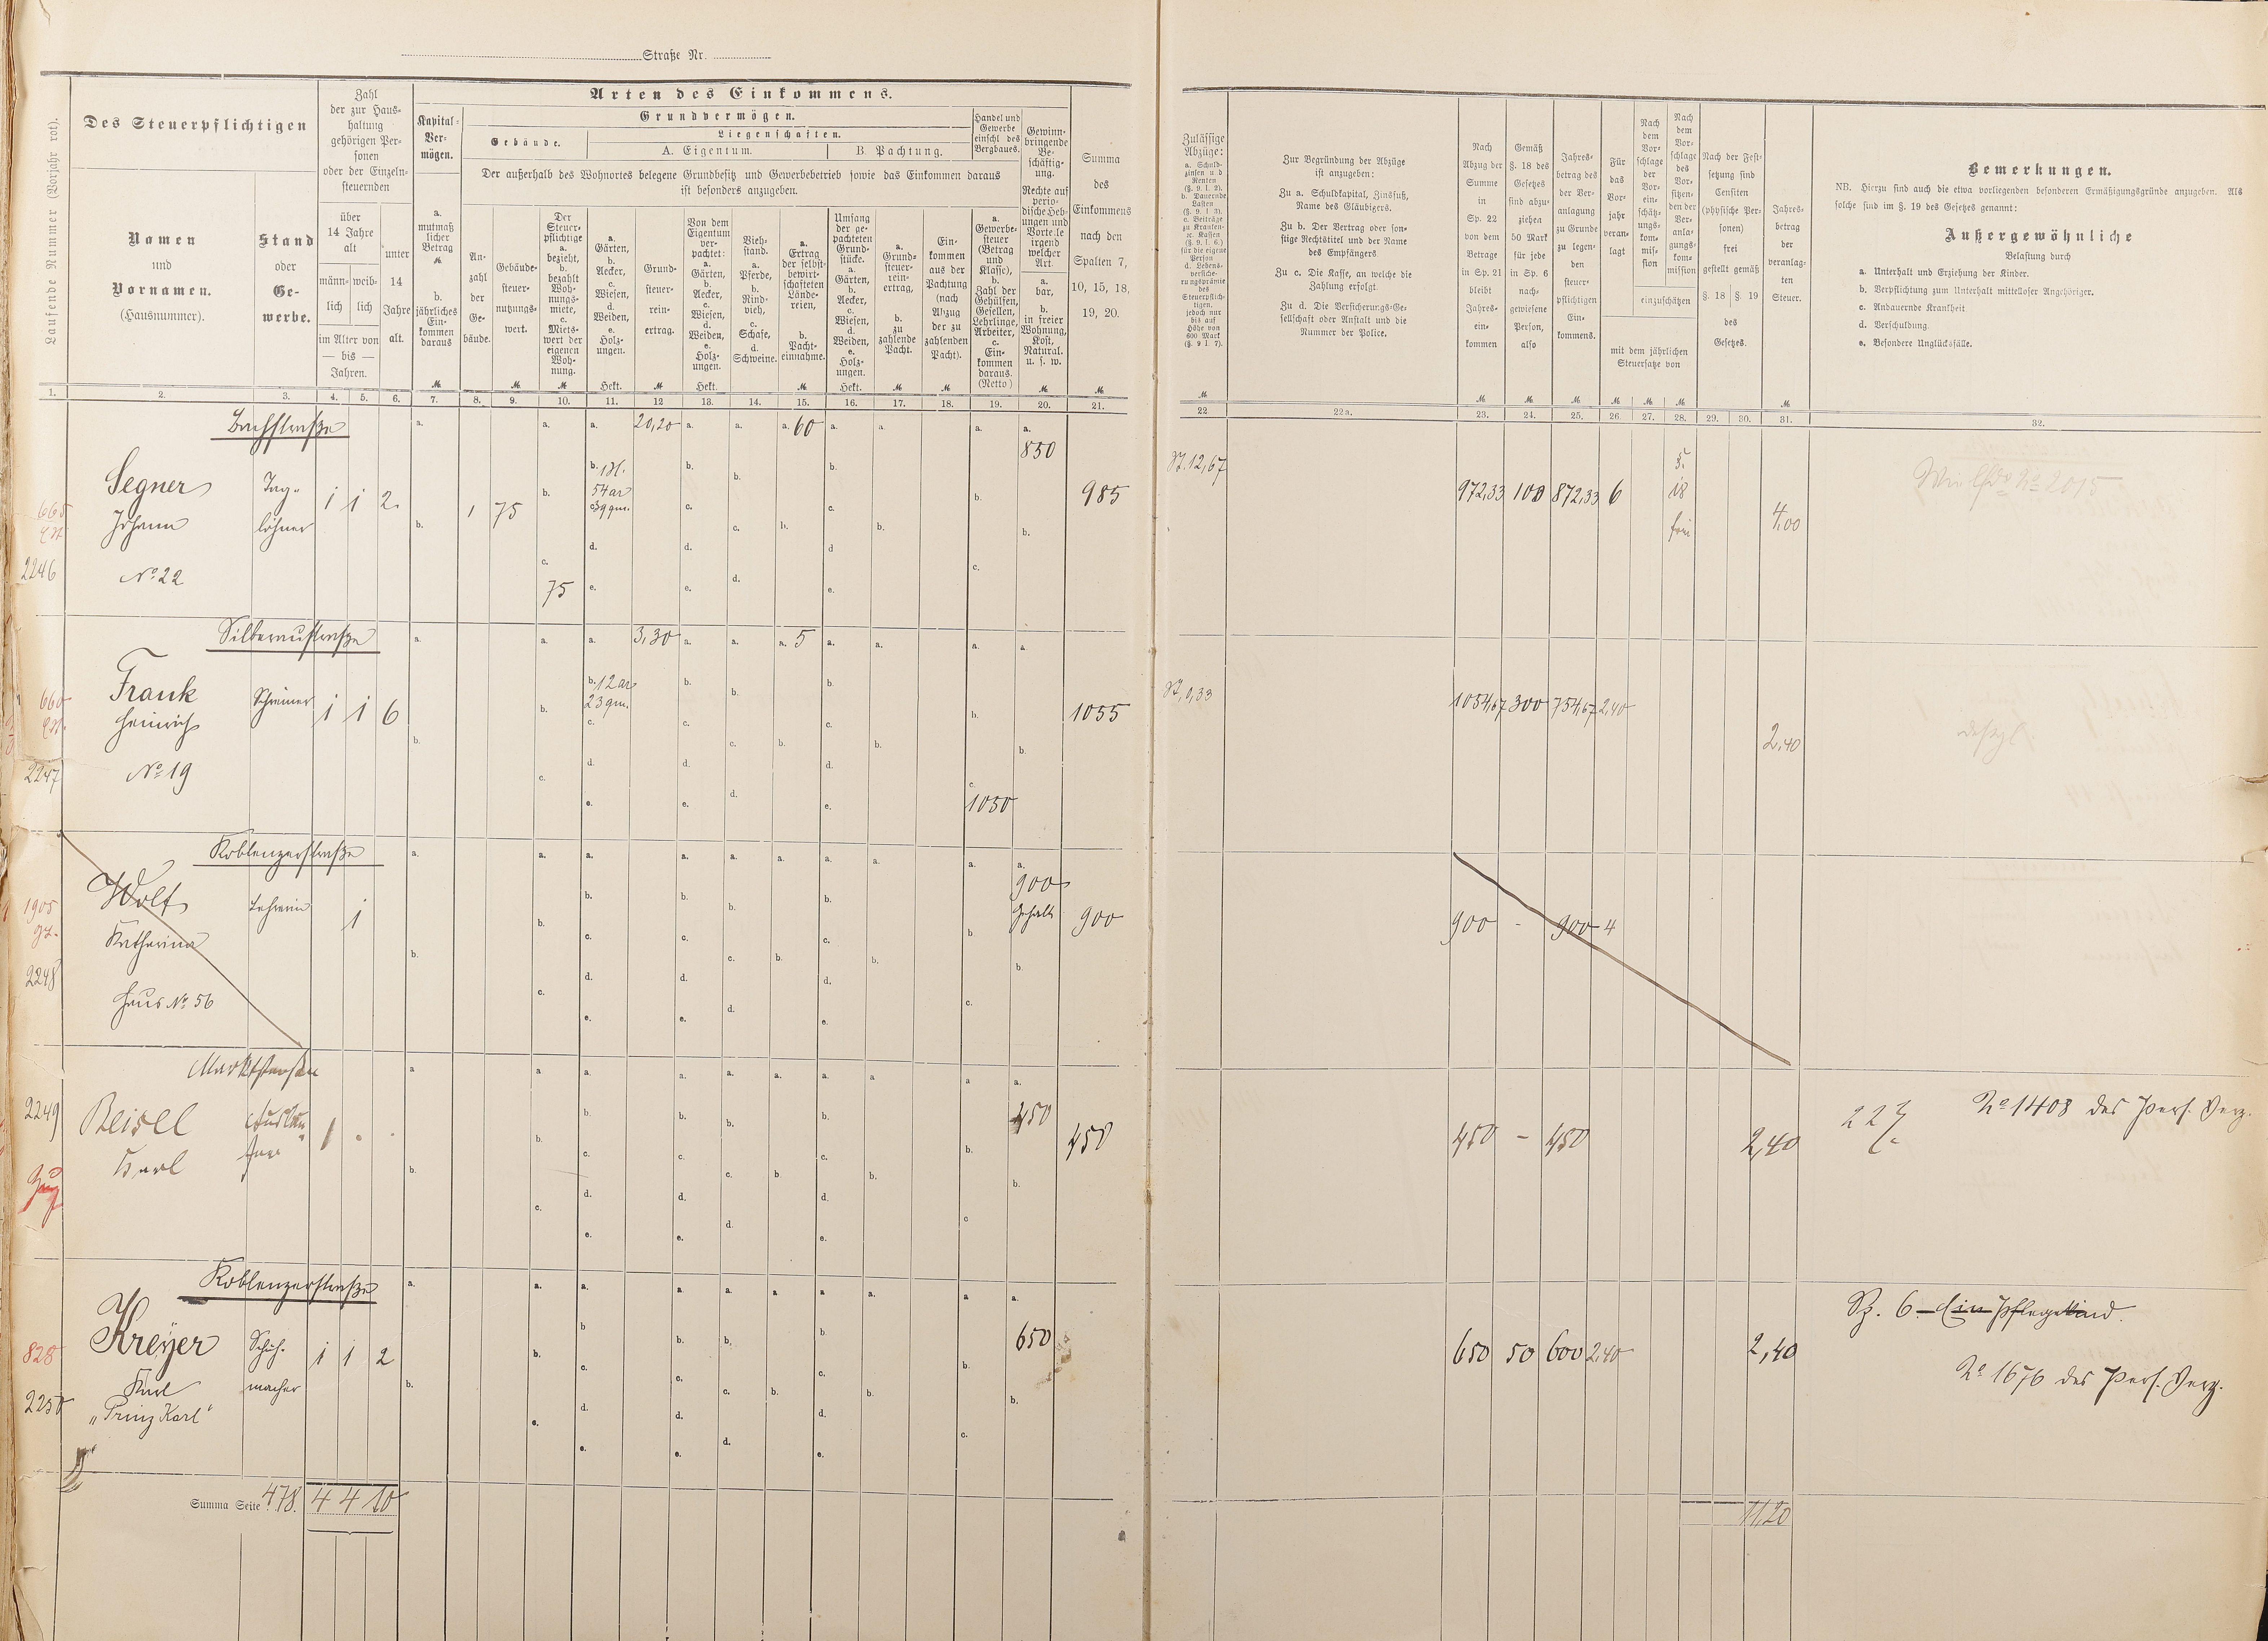 Straße Nr.
Laufende Nummer (Vorjahr rot).
Des Steuerpflichtigen
Namen
und
Vornamen.
(Hausnummer).
Stand
oder
Ge-
werbe.
Zahl
der zur Haus-
haltung
gehörigen Per-
sonen
oder der Einzeln-
steuernden
über
14 Jahre
alt
männ-
lich
weib-
lich
im Alter von
— bis —
Jahren.
unter
14
Jahre
alt.
Arten des Einkommens.
Kapital-
Ver-
mögen.
a.
mutmaß
licher
Betrag
M.
b.
jährliches
Ein-
kommen
daraus
M.
Grundvermögen.
Gebäude.
Liegenschaften.
A. Eigentum.
B. Pachtung.
Der außerhalb des Wohnortes belegene Grundbesitz und Gewerbebetrieb sowie das Einkommen daraus
ist besonders anzugeben.
An-
zahl
der
Ge-
bäude.
Gebäude-
steuer-
nutzungs-
wert.
M.
Der
Steuer-
pflichtige
a.
bezieht,
b.
bezahlt
Woh-
nungs-
miete,
c.
Miets-
wert der
eigenen
Woh-
nung.
M.
a.
Gärten,
b.
Aecker,
c.
Wiesen,
d.
Weiden,
e.
Holz-
ungen.
Hekt.
Grund-
steuer-
rein-
ertrag.
M
Von dem
Eigentum
ver-
pachtet:
a.
Gärten,
b.
Aecker,
c.
Wiesen,
d.
Weiden,
e.
Holz-
ungen.
Hekt.
Vieh-
stand.
a.
Pferde,
b.
Rind-
vieh,
c.
Schafe,
d.
Schweine.
a.
Ertrag
der selbst-
bewirt-
schafteten
Lände-
reien,
b.
Pacht-
einnahme.
M
Umfang
der ge-
pachteten
Grund-
stücke.
a.
Gärten,
b.
Aecker,
c.
Wiesen,
d.
Weiden,
e.
Holz-
ungen.
Hekt.
a.
Grund-
steuer-
rein-
ertrag,
b.
zu
zahlende
Pacht.
M
Ein-
kommen
aus der
Pachtung
(nach
Abzug
der zu
zahlenden
Pacht).
M
Handel und
Gewerbe
einschl des
Bergbaues.
a.
Gewerbe-
steuer
(Betrag
und
Klasse),
b.
Zahl der
Gehülfen,
Gesellen,
Lehrlinge,
Arbeiter,
c.
Ein-
kommen
daraus.
(Netto)
Gewinn-
bringende
Be-
schäftig-
ung.
Rechte auf
perio-
dische Heb-
ungen und
Vorteile
irgend
welcher
Art.
a.
bar,
b.
in freier
Wohnung,
Kost,
Natural.
u. s. w.
M
Summa
des
Einkommens
nach den
Spalten 7,
10, 15, 18,
19, 20.
M
Zulässige
Abzüge:
a. Schuld-
zinsen und
Renten
(§. 9. I. 2).
b. Dauernde
Lasten
(§. 9. I. 3).
c. Beiträge
zu Kranken-
2c. Kassen
(§. 9. I. 6.)
für die eigene
Person
d. Lebens-
versiche-
rungsprämie
des
Steuerpflich-
tigen.
jedoch nur
bis auf
Höhe von
600 Mark
(§. 9 I. 7).
M
Zur Begründung der Abzüge
ist anzugeben:
Zu a. Schuldkapital, Zinsfuß,
Name des Gläubigers.
Zu b. Der Vertrag oder son-
stige Rechtstitel und der Name
des Empfängers
Zu c. Die Kasse, an welche die
Zahlung erfolgt.
Zu d. Die Versicherungs-Ge-
sellschaft oder Anstalt und die
Nummer der Police.
Nach
Abzug der
Summe
in
Sp. 22
von dem
Betrage
in Sp. 21
bleibt
Jahres-
ein-
kommen
M
Gemäß
§. 18 des
Gesetzes
sind abzu-
ziehen
50 Mark
für jede
in Sp. 6
nach-
gewiesene
Person,
also
M
Jahres-
betrag des
der Ver-
anlagung
zu Grunde
zu legen-
den
steuer-
pflichtigen
Ein-
kommens.
M
Für
das
Vor-
jahr
veran-
lagt
M
Nach
dem
Vor-
schlage
der
Vor-
ein-
schätz-
ungs-
kom-
mis-
sion
Nach
dem
Vor-
schlage
des
Vor-
sitzen-
den der
Ver-
anla-
gungs-
kom-
mission
einzuschätzen
mit dem jährlichen
Steuersatze von
M M
Nach der Fest-
setzung sind
Censiten
(physische Per-
sonen)
frei
gestellt gemäß
§. 18 §. 19
des
Gesetzes.
Jahres-
betrag
der
veranlag-
ten
Steuer.
M
Bemerkungen.
NB. Hierzu sind auch die etwa vorliegenden besonderen Ermäßigungsgründe anzugeben. Als
solche sind im §. 19 des Gesetzes genannt:
Außergewöhnliche
Belastung durch
a. Unterhalt und Erziehung der Kinder.
b. Verpflichtung zum Unterhalt mittelloser Angehöriger.
c. Andauernde Krankheit
d. Verschuldung.
e. Besondere Unglücksfälle.
1. 2. 3. 4. 5. 6. 7. 8. 9. 10. 11. 12 13. 14. 15. 16. 17. 18. 19. 20. 21. 22 22a. 23. 24. 25. 26. 27. 28. 29. 30. 31. 32.
Bachstraße
20,20 60 850
665
2246
Segner
Johann
No 22
Tag-
löhner
1 1 2.
1 75
75
54 ar
39 qm.
985
12,67
972,33 100 872,33 6
frei
4,00
No 2015
Silberaustraße
3,30 5
660
2247
Frank
Heinrich
No 19
Schreiner
1 1 6
12 ar
23 qm.
1050
1055
0,33
1054,67 300 754,67 2,40
2,40
desgl.
Koblenzerstraße
1905
2248
Wolf
Katharina
Haus No 56
Lehrerin
1
900
Gehalt
900
900 - 900 4
Marktstraße
2249
Zug
Beisel
Karl
Auslän-
1 . .
450
450
450 - 450
2,40
No 1408 des Pers. Verz.
Koblenzerstraße
828
2250
Kreyer
Karl
"Prinz Karl"
Schuh-
macher
1 1 2
650
650 50 600 2,40
2,40
Sp. 6 - Ein Pflegekind.
No 1676 des Pers. Verz.
Summa Seite 478. 4 4 10
11,20